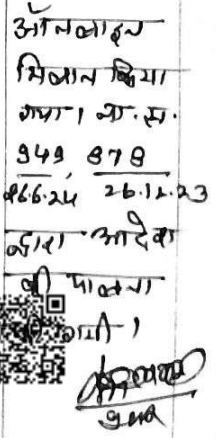 ऑनलाइन
मिलान किया
गया। ना.स.
949, 878
26.6.24 26.12.23
द्वारा आदेश
की पालना
की गयी।